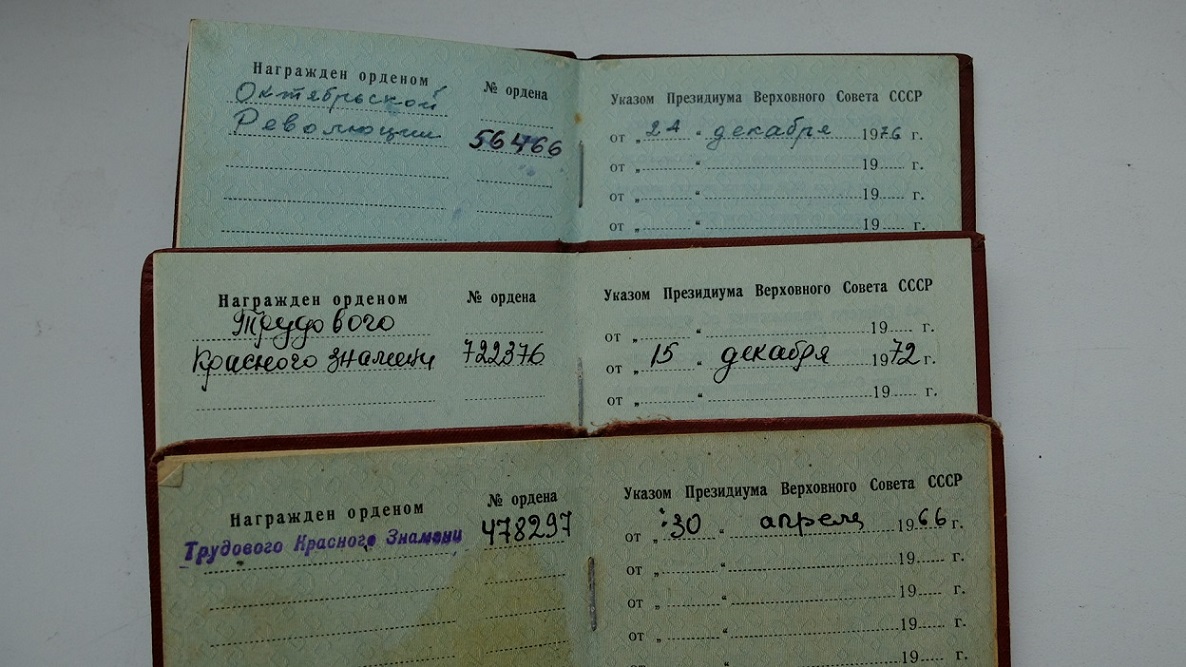 Награжден орденом № ордена
Октябрьской
Революции 56466
Указом Президиума Верховного Совета СССР
от „24“ декабря 1976 г.
от „ “ 19 г.
от „ “ 19 г.
от „ “ 19 г.
Награжден орденом № ордена
Трудового
Красного знамени 722376
Указом Президиума Верховного Совета СССР
от „ “ 19 г.
от „15“ декабря 1972 г.
от „ “ 19 г.
Награжден орденом № ордена
Трудового Красного Знамени 478297
Указом Президиума Верховного Совета СССР
от „30“ апреля 1966 г.
от „ “ 19 г.
от „ “ 19 г.
от „ “ 19 г.
от „ “ 19 г.